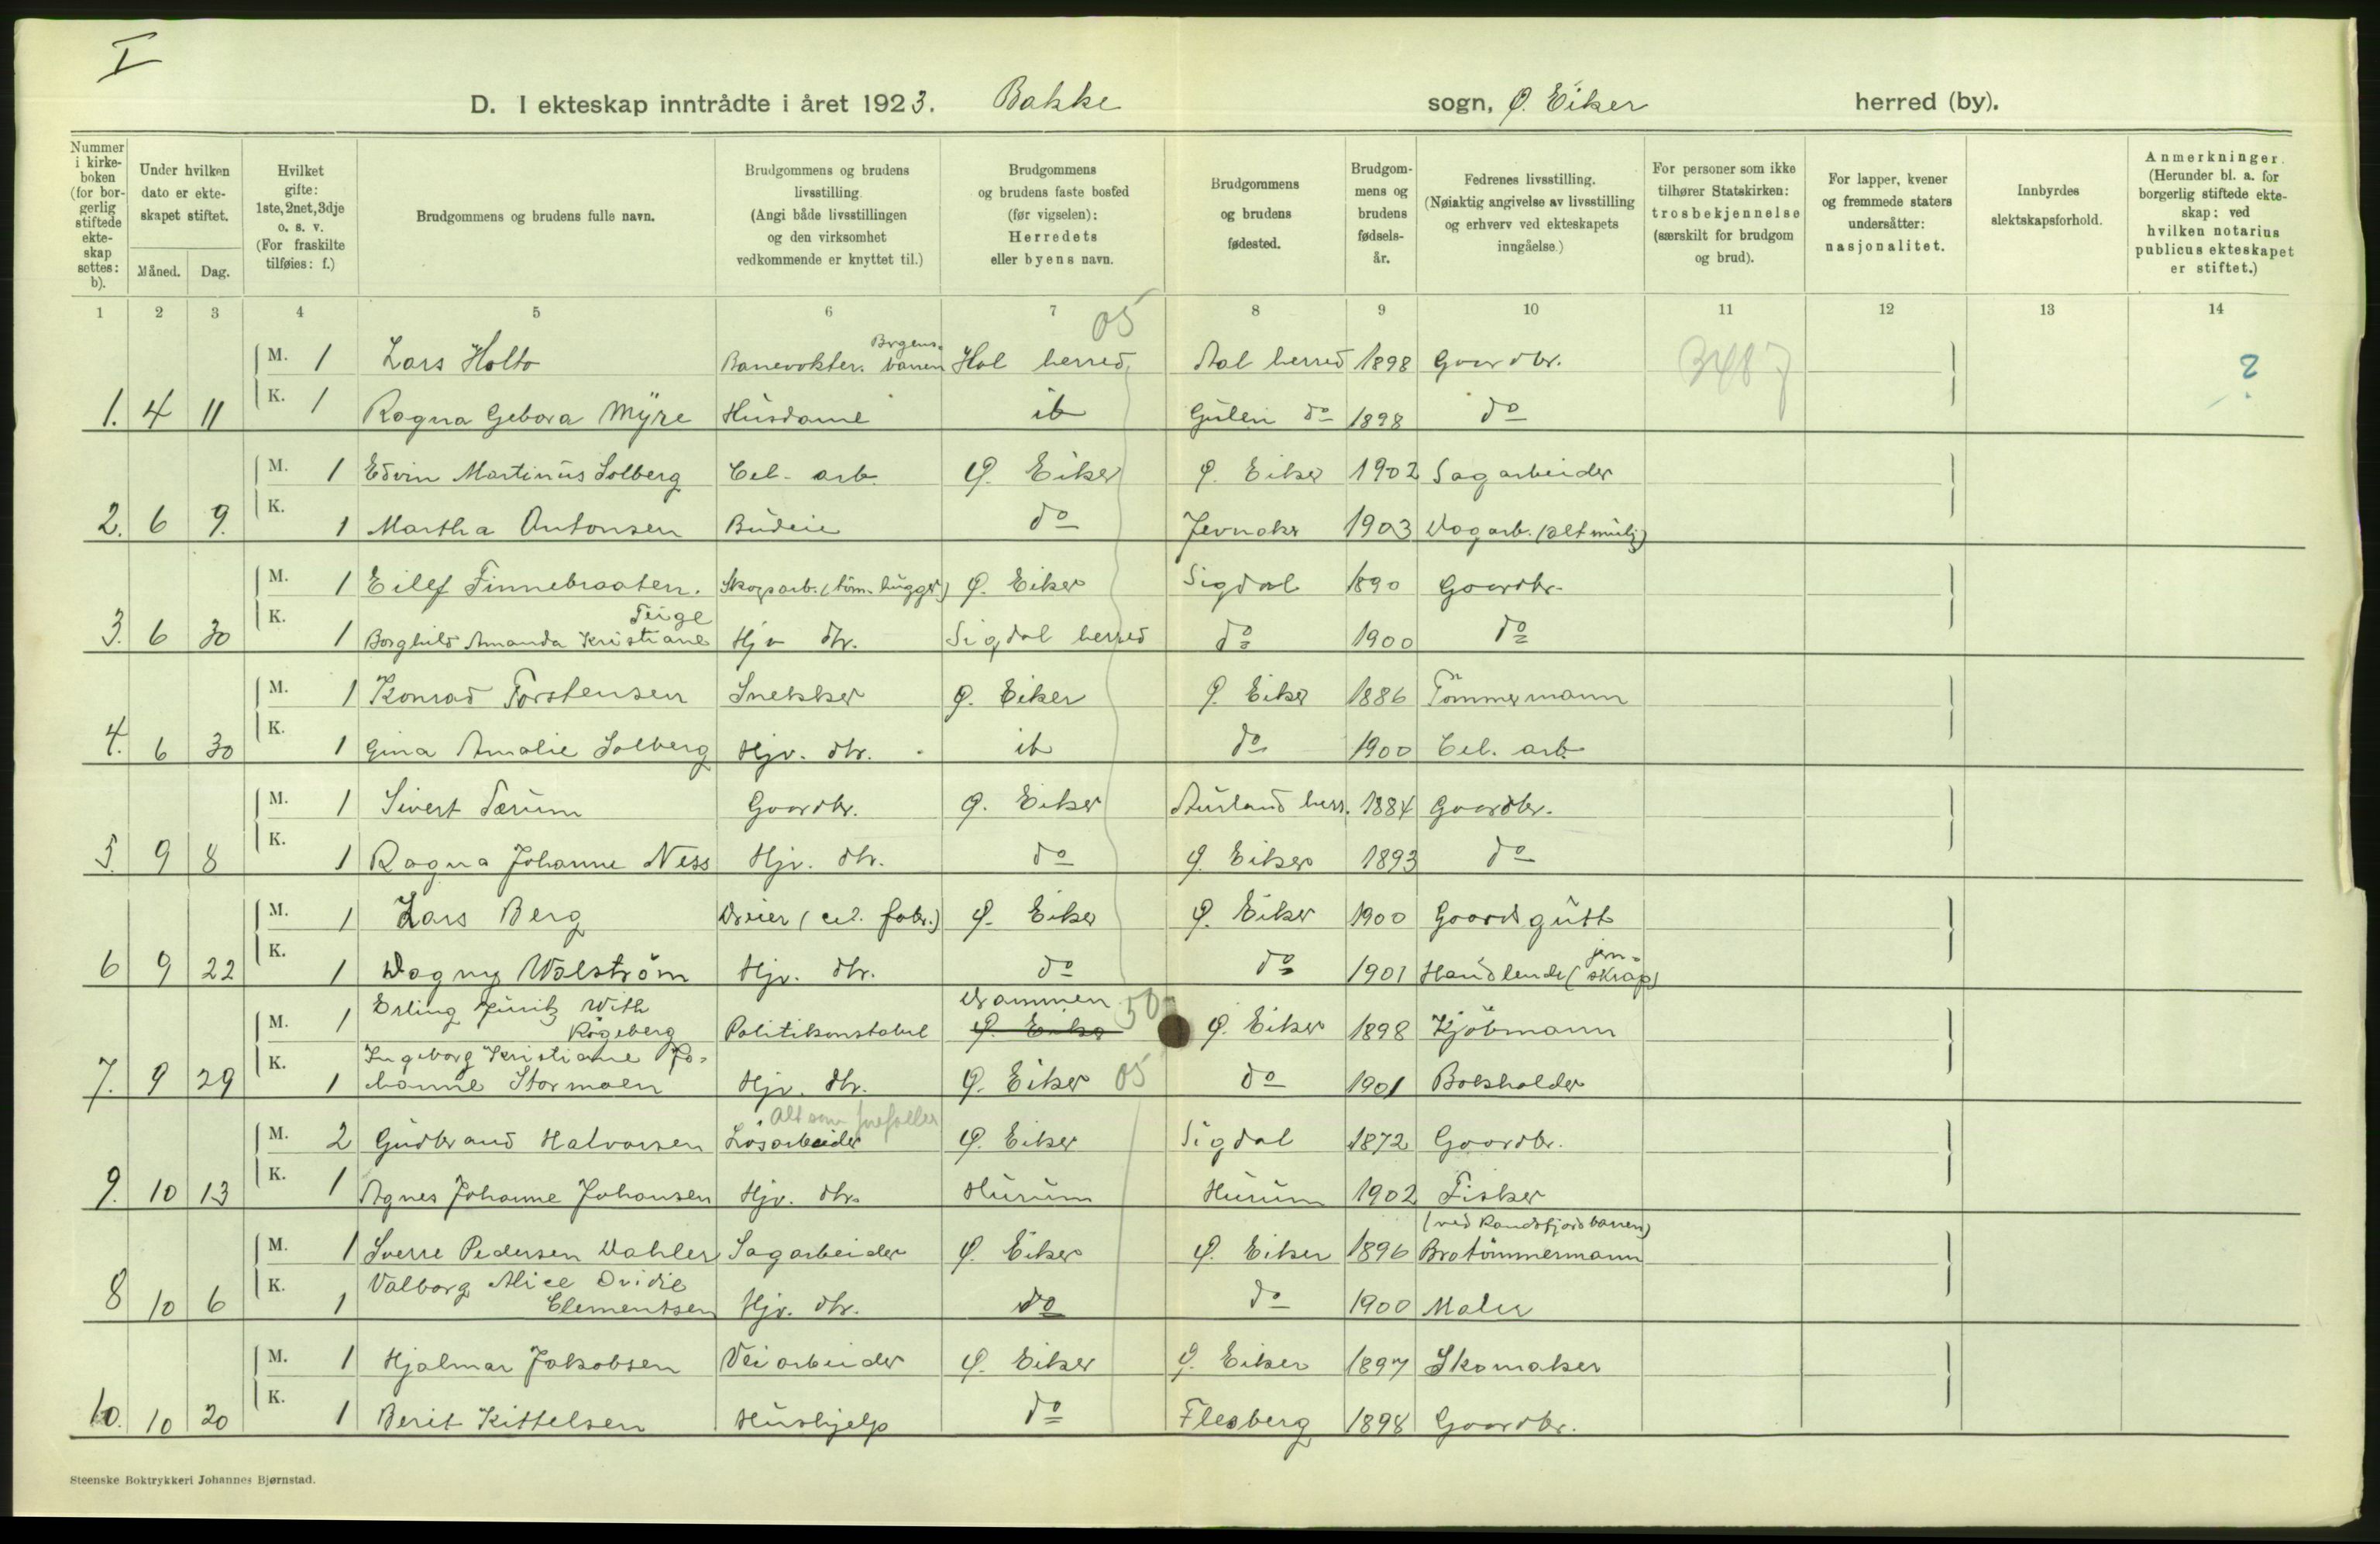 I
D. I ekteskap inntrådte i året 1923. Bakke sogn, Ø. Eiker herred (by).
Nummer i kirke- boken (for bor- gerlig stiftede ekte- skap settes: b).
Under hvilken dato er ekte- skapet stiftet.
Måned. Dag.
Hvilket gifte: 1ste, 2net, 3dje o. s. v. (For fraskilte tilføies: f.)
Brudgommens og brudens fulle navn.
Brudgommens og brudens livsstilling. (Angi både livsstillingen og den virksomhet vedkommende er knyttet til.)
Brudgommens og brudens faste bosted (før vigselen): Herredets eller byens navn.
Brudgommens og brudens fødested.
Brudgom- mens og brudens fødsels- år.
Fedrenes livsstilling. (Nøiaktig angivelse av livsstilling og erhverv ved ekteskapets inngåelse.)
For personer som ikke tilhører Statskirken: trosbekjennelse (særskilt for brudgom og brud).
For lapper, kvener og fremmede staters undersåtter: nasjonalitet.
Innbyrdes slektskapsforhold.
Anmerkninger. (Herunder bl. a. for borgerlig stiftede ekte- skap: ved hvilken notarius publicus ekteskapet er stiftet.)
1 2 3 4 5 6 7 8 9 10 11 12 13 14
05
M. 1 Lars Holto Banevokter. Brgens. banen Hol herred Aal herred 1898 Gaardbr. 3487 ?
1. 4 11 K. 1 Ragna Gebora Myre Husdame ib Gulen do 1898 do
M. 1 Edvin Martinus Solberg Cel. arb. Ø. Eiker Ø. Eiker 1902 Sagarbeider
2. 6 9. K. 1 Martha Antonsen Budeie do Jevnaker 1903 Dagarb. (alt mulig)
M. 1 Eilef Finnebraaten. Skogsarb. (töm.hugger) Ø. Eiker Sigdal 1890 Gaardbr.
3. 6 30 K. 1 Borghild Amanda Kristiane Teige Hjv dtr. Sigdal herred do 1900 do
M. 1 Konrad Torstensen Snekker Ø. Eiker Ø. Eiker 1886 Tömmermann
4. 6 30 K. 1 Gina Amalie Solberg Hjv. dtr. ib do 1900 Cel. arb.
M. 1 Sivert Tærum Gaardbr. Ø. Eiker Aurland herr. 1884 Gaardbr.
5. 9 8 K. 1 Ragna Johanne Ness Hjv. dtr. do Ø. Eiker 1893 do
M. 1 Lars Berg Dreier (cel. fabr.) Ø. Eiker Ø. Eiker 1900 Gaardsgutt
6 9 22 K. 1 Dagny Walström Hjv. dtr. do do 1901 Handlende (jern- skrap)
M. 1 Erling Juritz With Rögeberg Politikonstabel Drammen Ø. Eiker 50 Ø. Eiker 1898 Kjöbmann
7. 9 29 K. 1 Ingeborg Kristiane Jo- hanne Stormoen Hjv. dtr. Ø. Eiker 05 do 1901 Boksholder
M. 2 Gudbrand Halvorsen Lösarbeider Alt som forefaller Ø. Eiker Sigdal 1872 Gaardbr.
9. 10 13 K. 1 Agnes Johanne Johansen Hjv. dtr. Hurum Hurum 1902 Fisker
M. 1 Sverre Pedersen Dahler Sagarbeider Ø. Eiker Ø. Eiker 1896 (ved Randsfjordbanen) Brotömmermann
8 10 6 K. 1 Valborg Alice Ovidie Clementsen Hjv. dtr. do do 1900 Maler
M. 1 Hjalmar Jakobsen Veiarbeider Ø. Eiker Ø. Eiker 1897 Skomaker
10. 10 20 K. 1 Berit Kittelsen Hushjelp do Flesberg 1898 Gaardbr.
Steenske Boktrykkeri Johannes Bjørnstad.